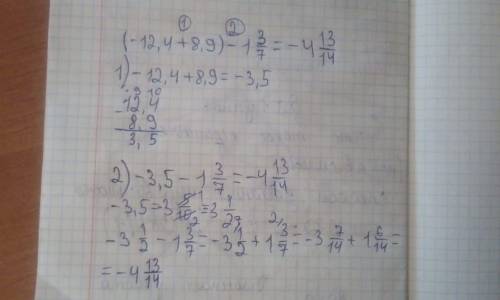 ① ②
(-12,4+8,9)-1 3/7=-4 13/14
1)-12,4+8,9=-3,5
9 10
-12,4
8,9
3,5
2)-3,5-1 3/7=-4 13/14
-3,5=3 5/10=3 1/2
-3 1/2-1 3/7=-3 1/2+1 3/7=-3 7/14+1 6/14=
=-4 13/14